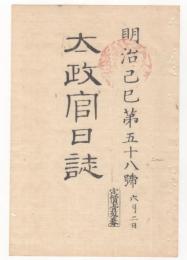 明治己巳第五十八號 六月二日
太政官日誌